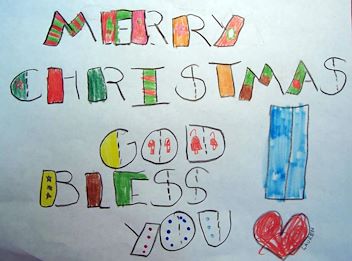 MERRY
CHRISTMAS
GOD
BLESS
YOU